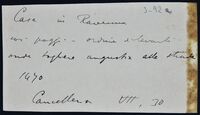 J-92a
Case in Ravenna
con poggi - ordine rilevanti -
onde togliere angustia alle strade
1470
Cancelleria VII, 30